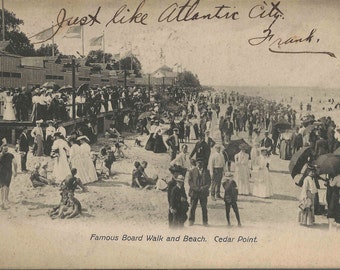 Just like Atlantic City.
Frank.
Famous Board Walk and Beach. Cedar Point.